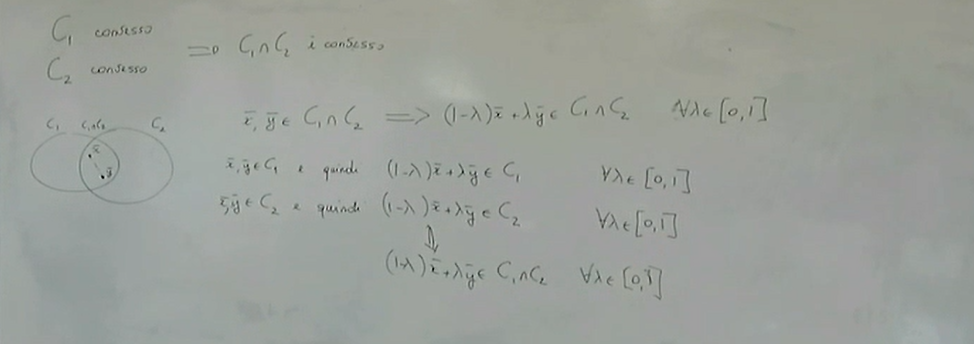 C₁ convesso
C₂ convesso
⇒ C₁∩C₂ è convesso
x̄, ȳ ∈ C₁∩C₂ ⇒ (1-λ)x̄+λȳ ∈ C₁∩C₂ ∀λ∈[0,1]
C₁ C₁∩C₂ C₂
x̄
ȳ
x̄,ȳ∈C₁ e quindi (1-λ)x̄+λȳ ∈ C₁ ∀λ∈[0,1]
x̄,ȳ∈C₂ e quindi (1-λ)x̄+λȳ ∈ C₂ ∀λ∈[0,1]
⇓
(1-λ)x̄+λȳ ∈ C₁∩C₂ ∀λ∈[0,1]